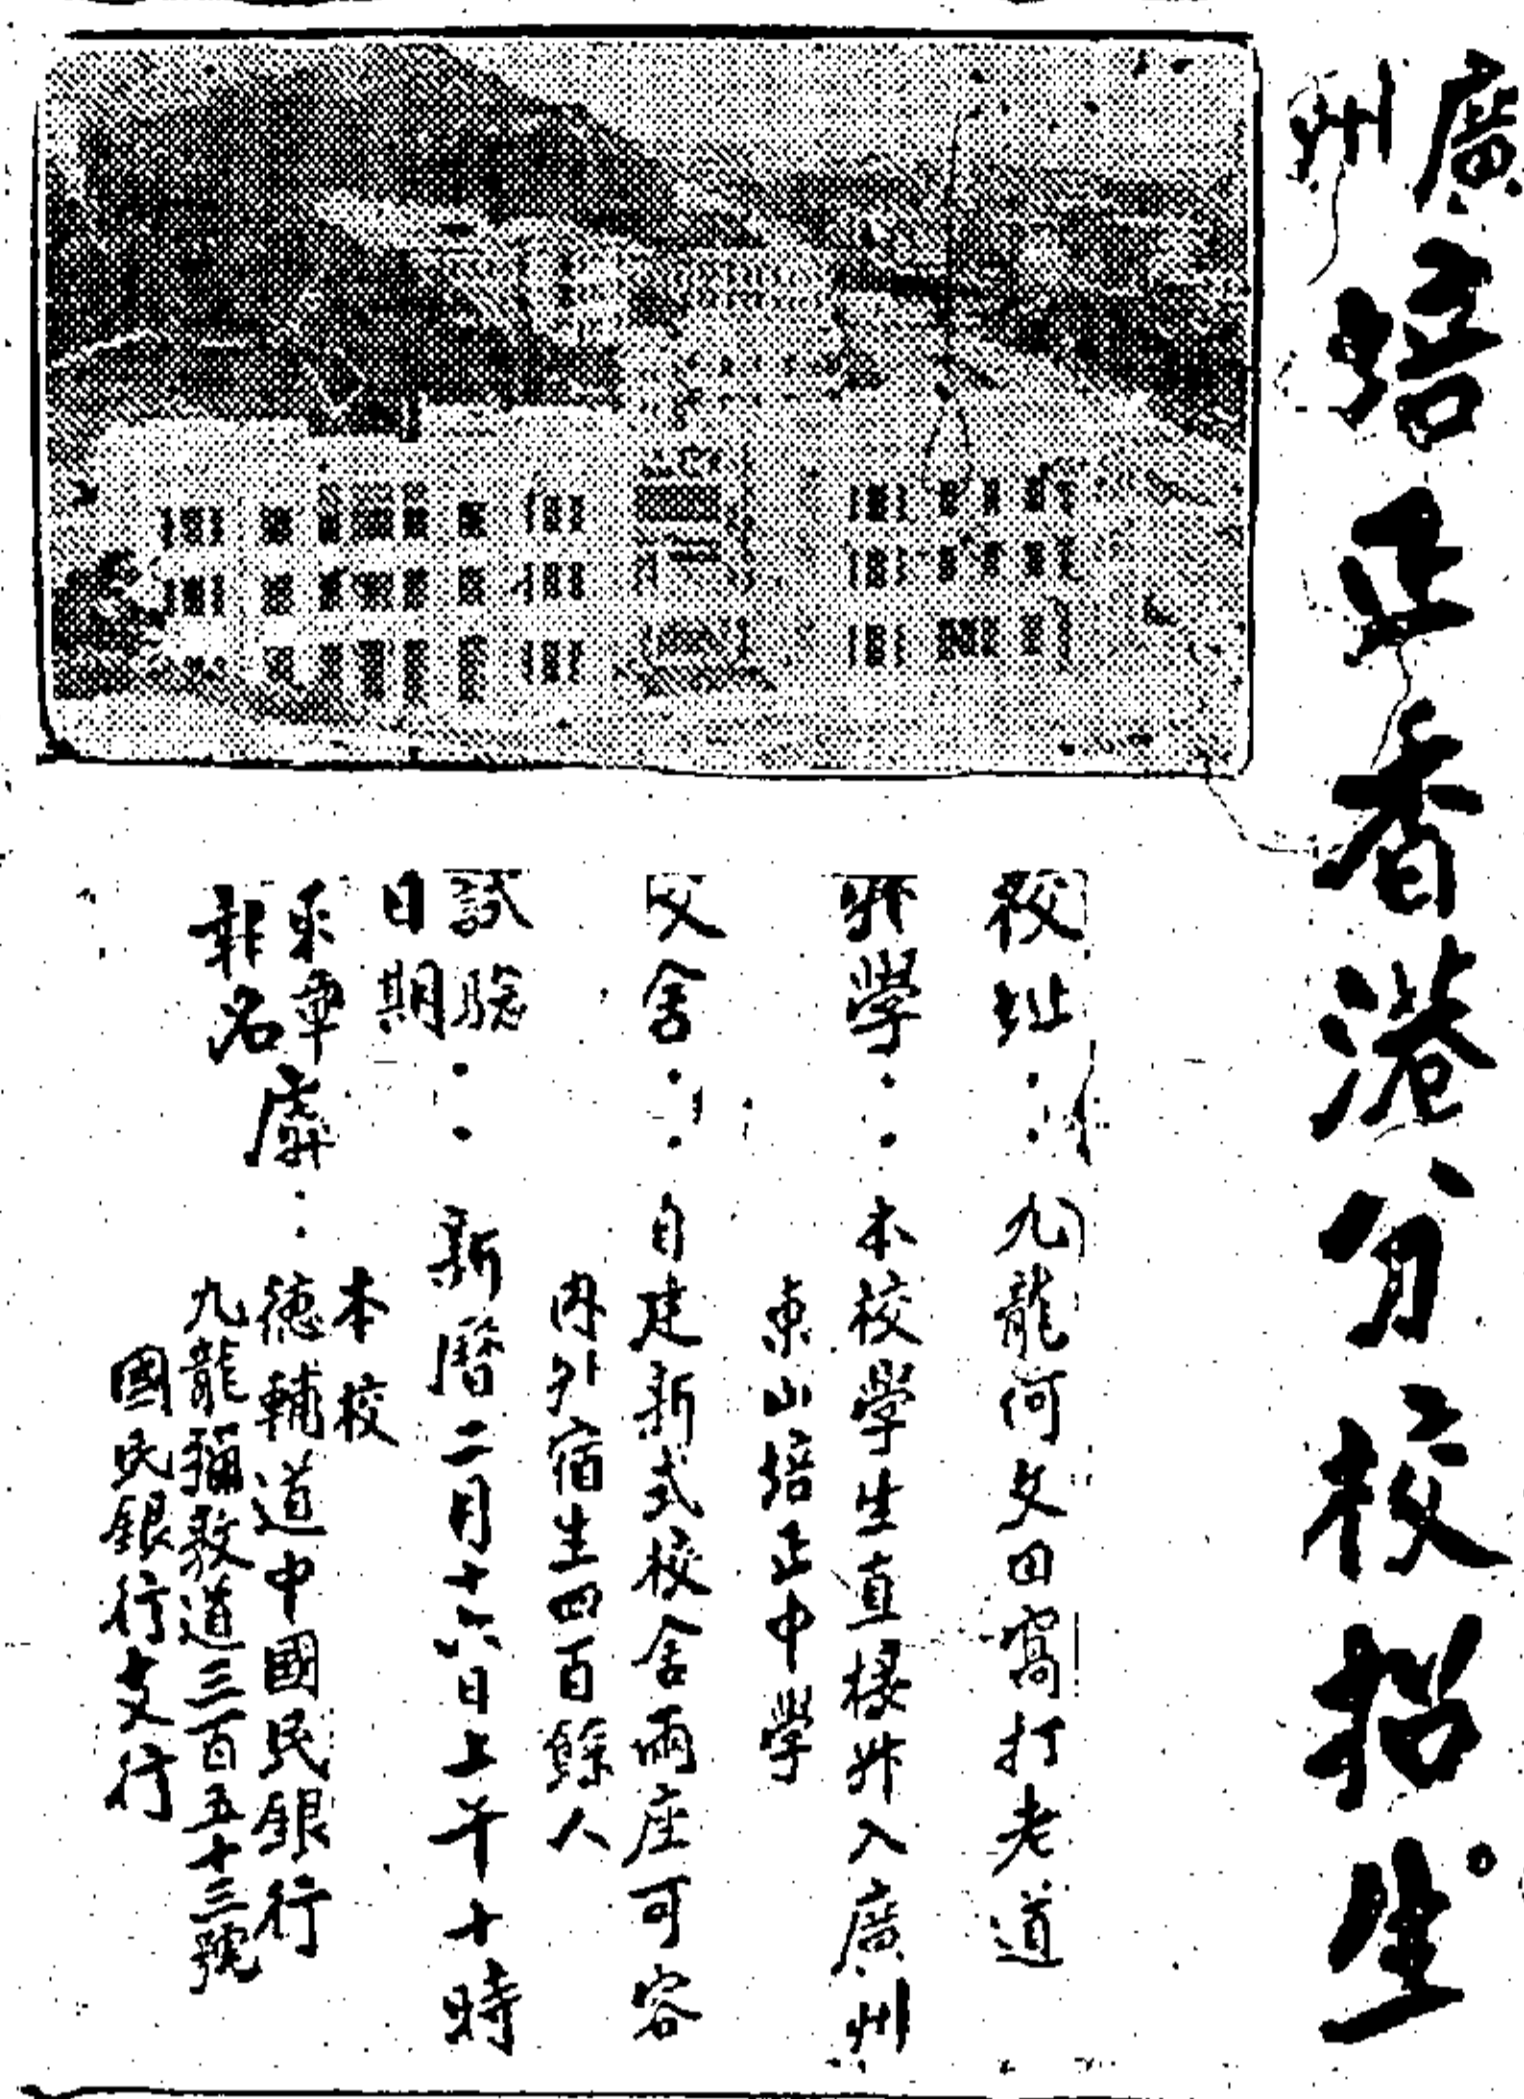 廣州培正香港分校招生
校址：九龍何文田窩打老道
升學：本校學生直接升入廣州
東山培正中學
校舍：自建新式校舍兩座可容
內外宿生四百餘人
試驗日期：新曆二月十六日上午十時
釆章報名處：本校
德輔道中國民銀行
九龍彌敦道三百五十三號
國民銀行支行